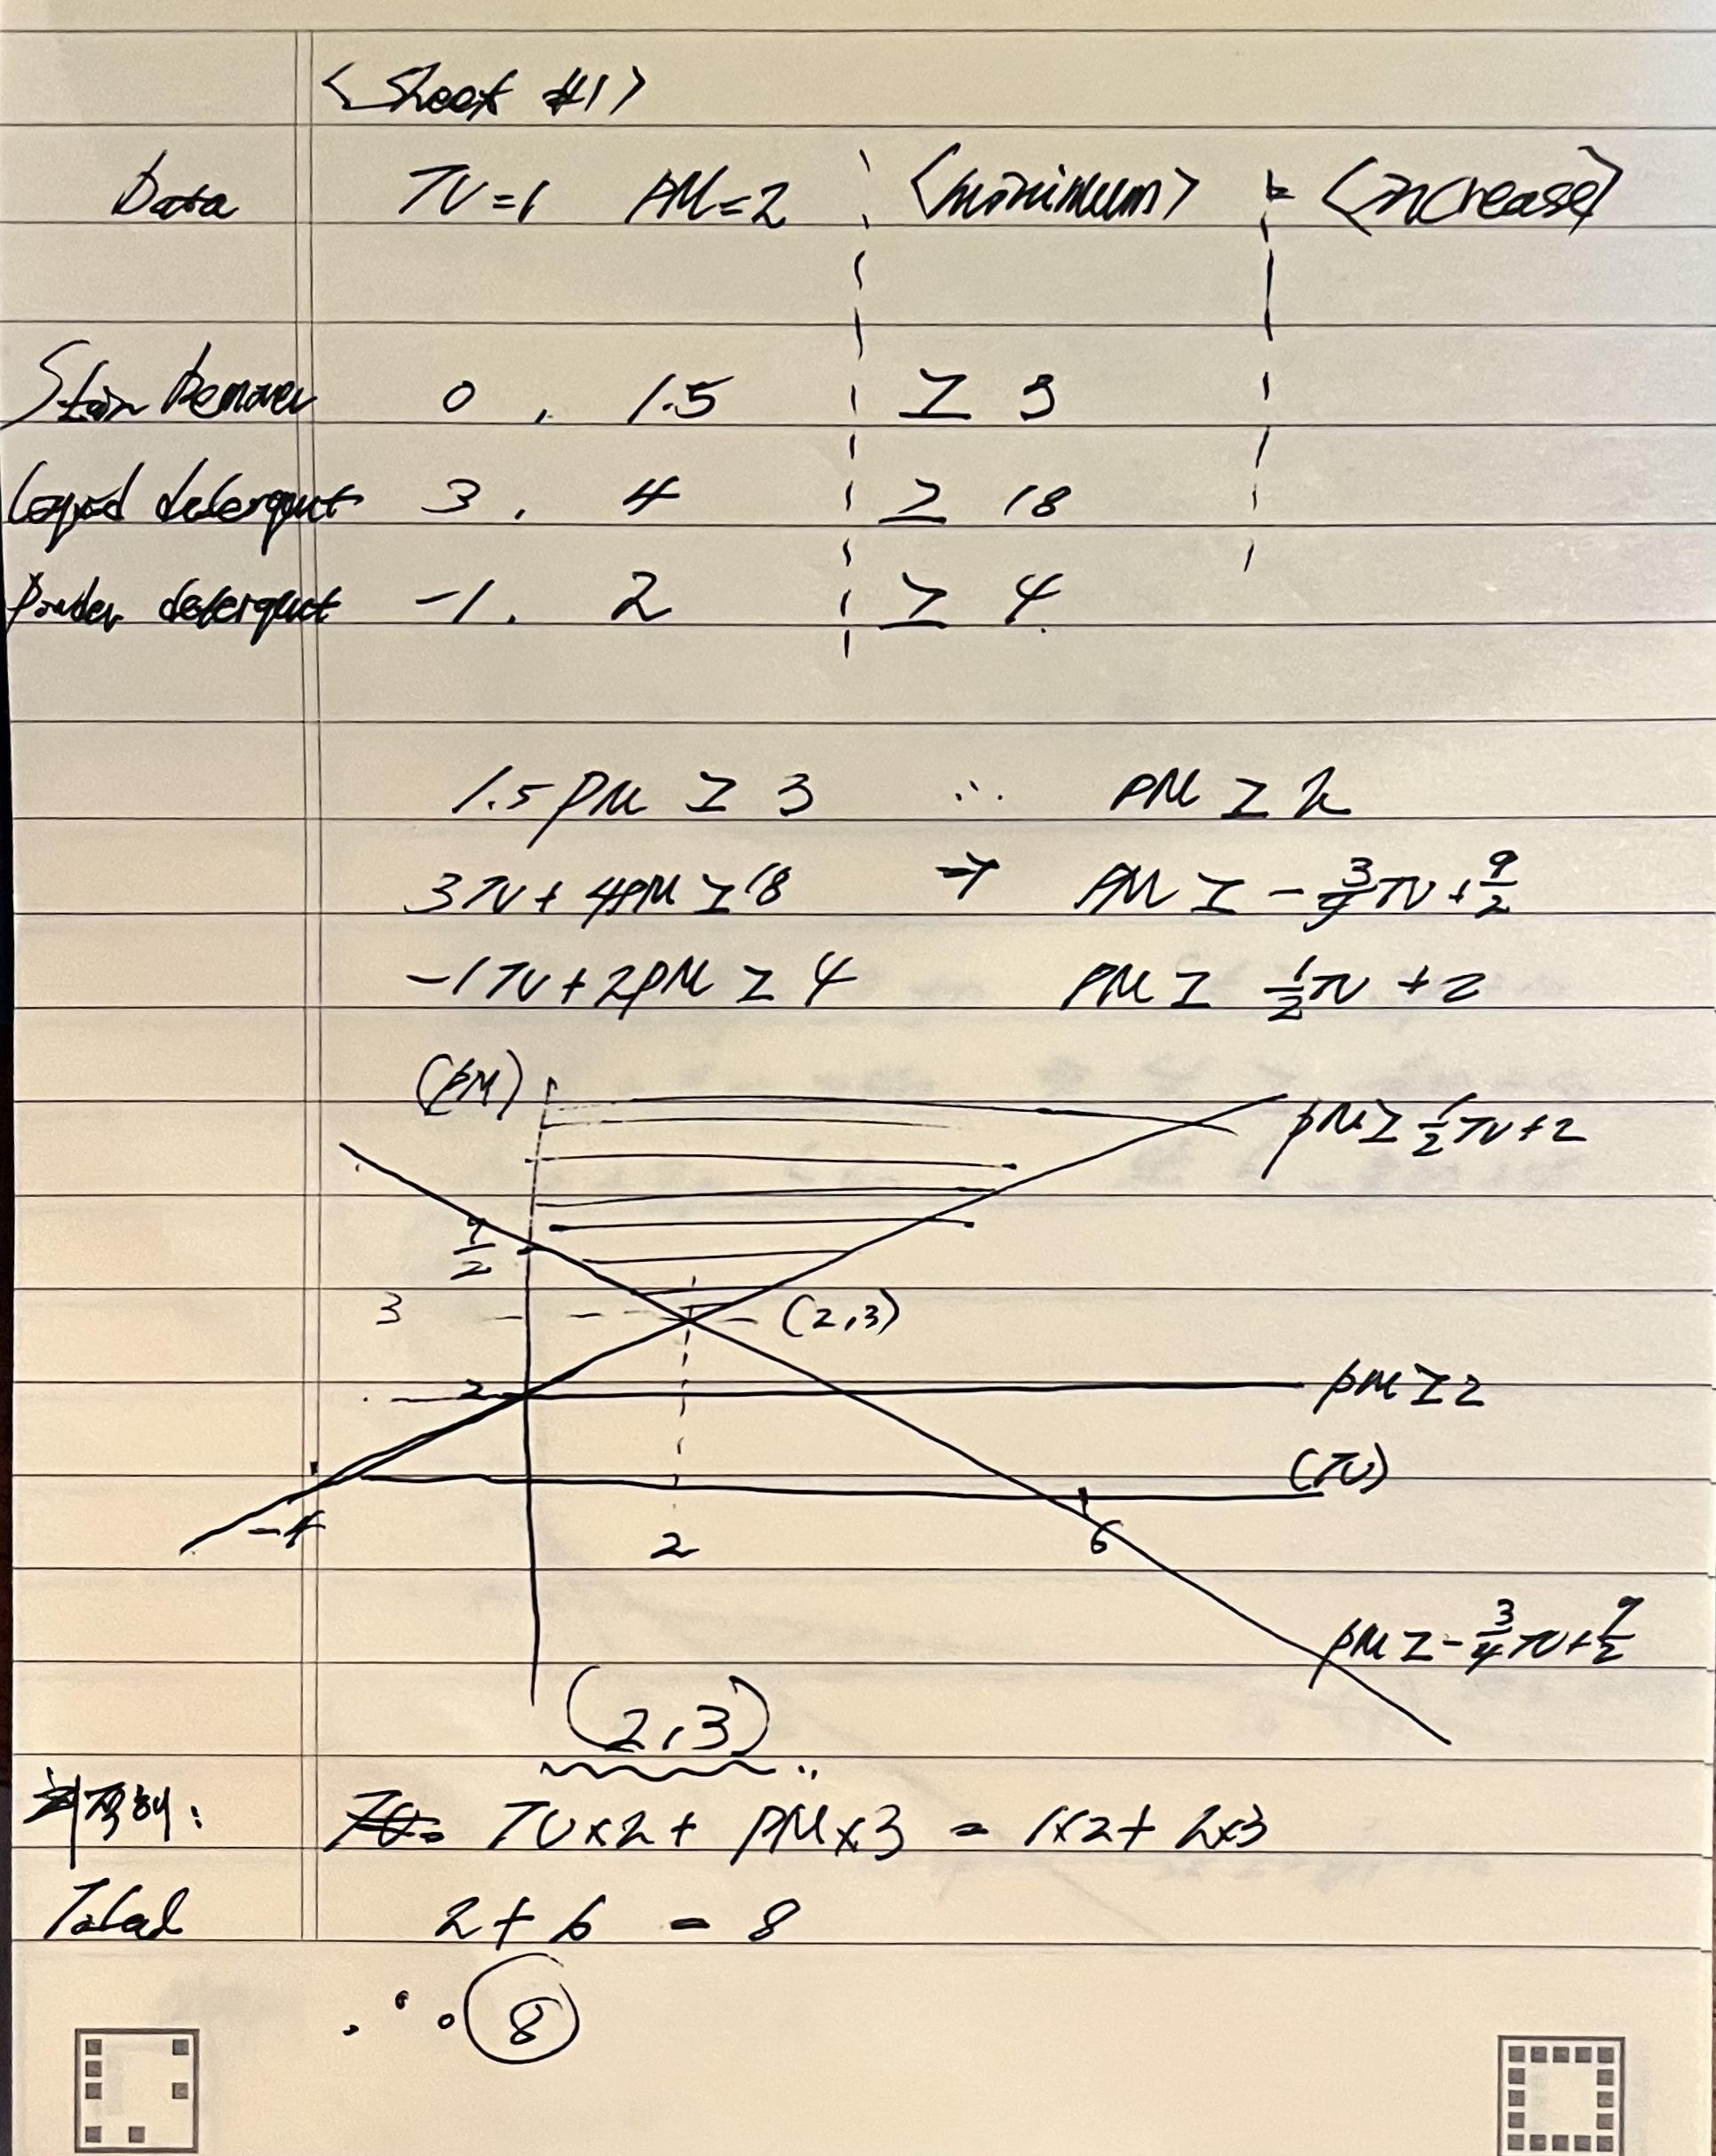 <Sheet #1>
Data TV=1 PM=2 <minimum> <increase>
Stain Remover 0, 1.5 ≥ 3
Liquid detergent 3, 4 ≥ 18
Powder detergent -1, 2 ≥ 4
1.5PM ≥ 3 ∴ PM ≥ 2
3TV + 4PM ≥ 18 → PM ≥ -3/4TV + 9/2
-1TV + 2PM ≥ 4 PM ≥ 1/2TV + 2
(PM)
PM ≥ 1/2TV + 2
9/2
3 (2,3)
2 PM ≥ 2
(TV)
-4 2 6
PM ≥ -3/4TV + 9/2
(2,3)
최적해: TV×2 + PM×3 = 1×2 + 2×3
Total 2 + 6 = 8
∴ 8